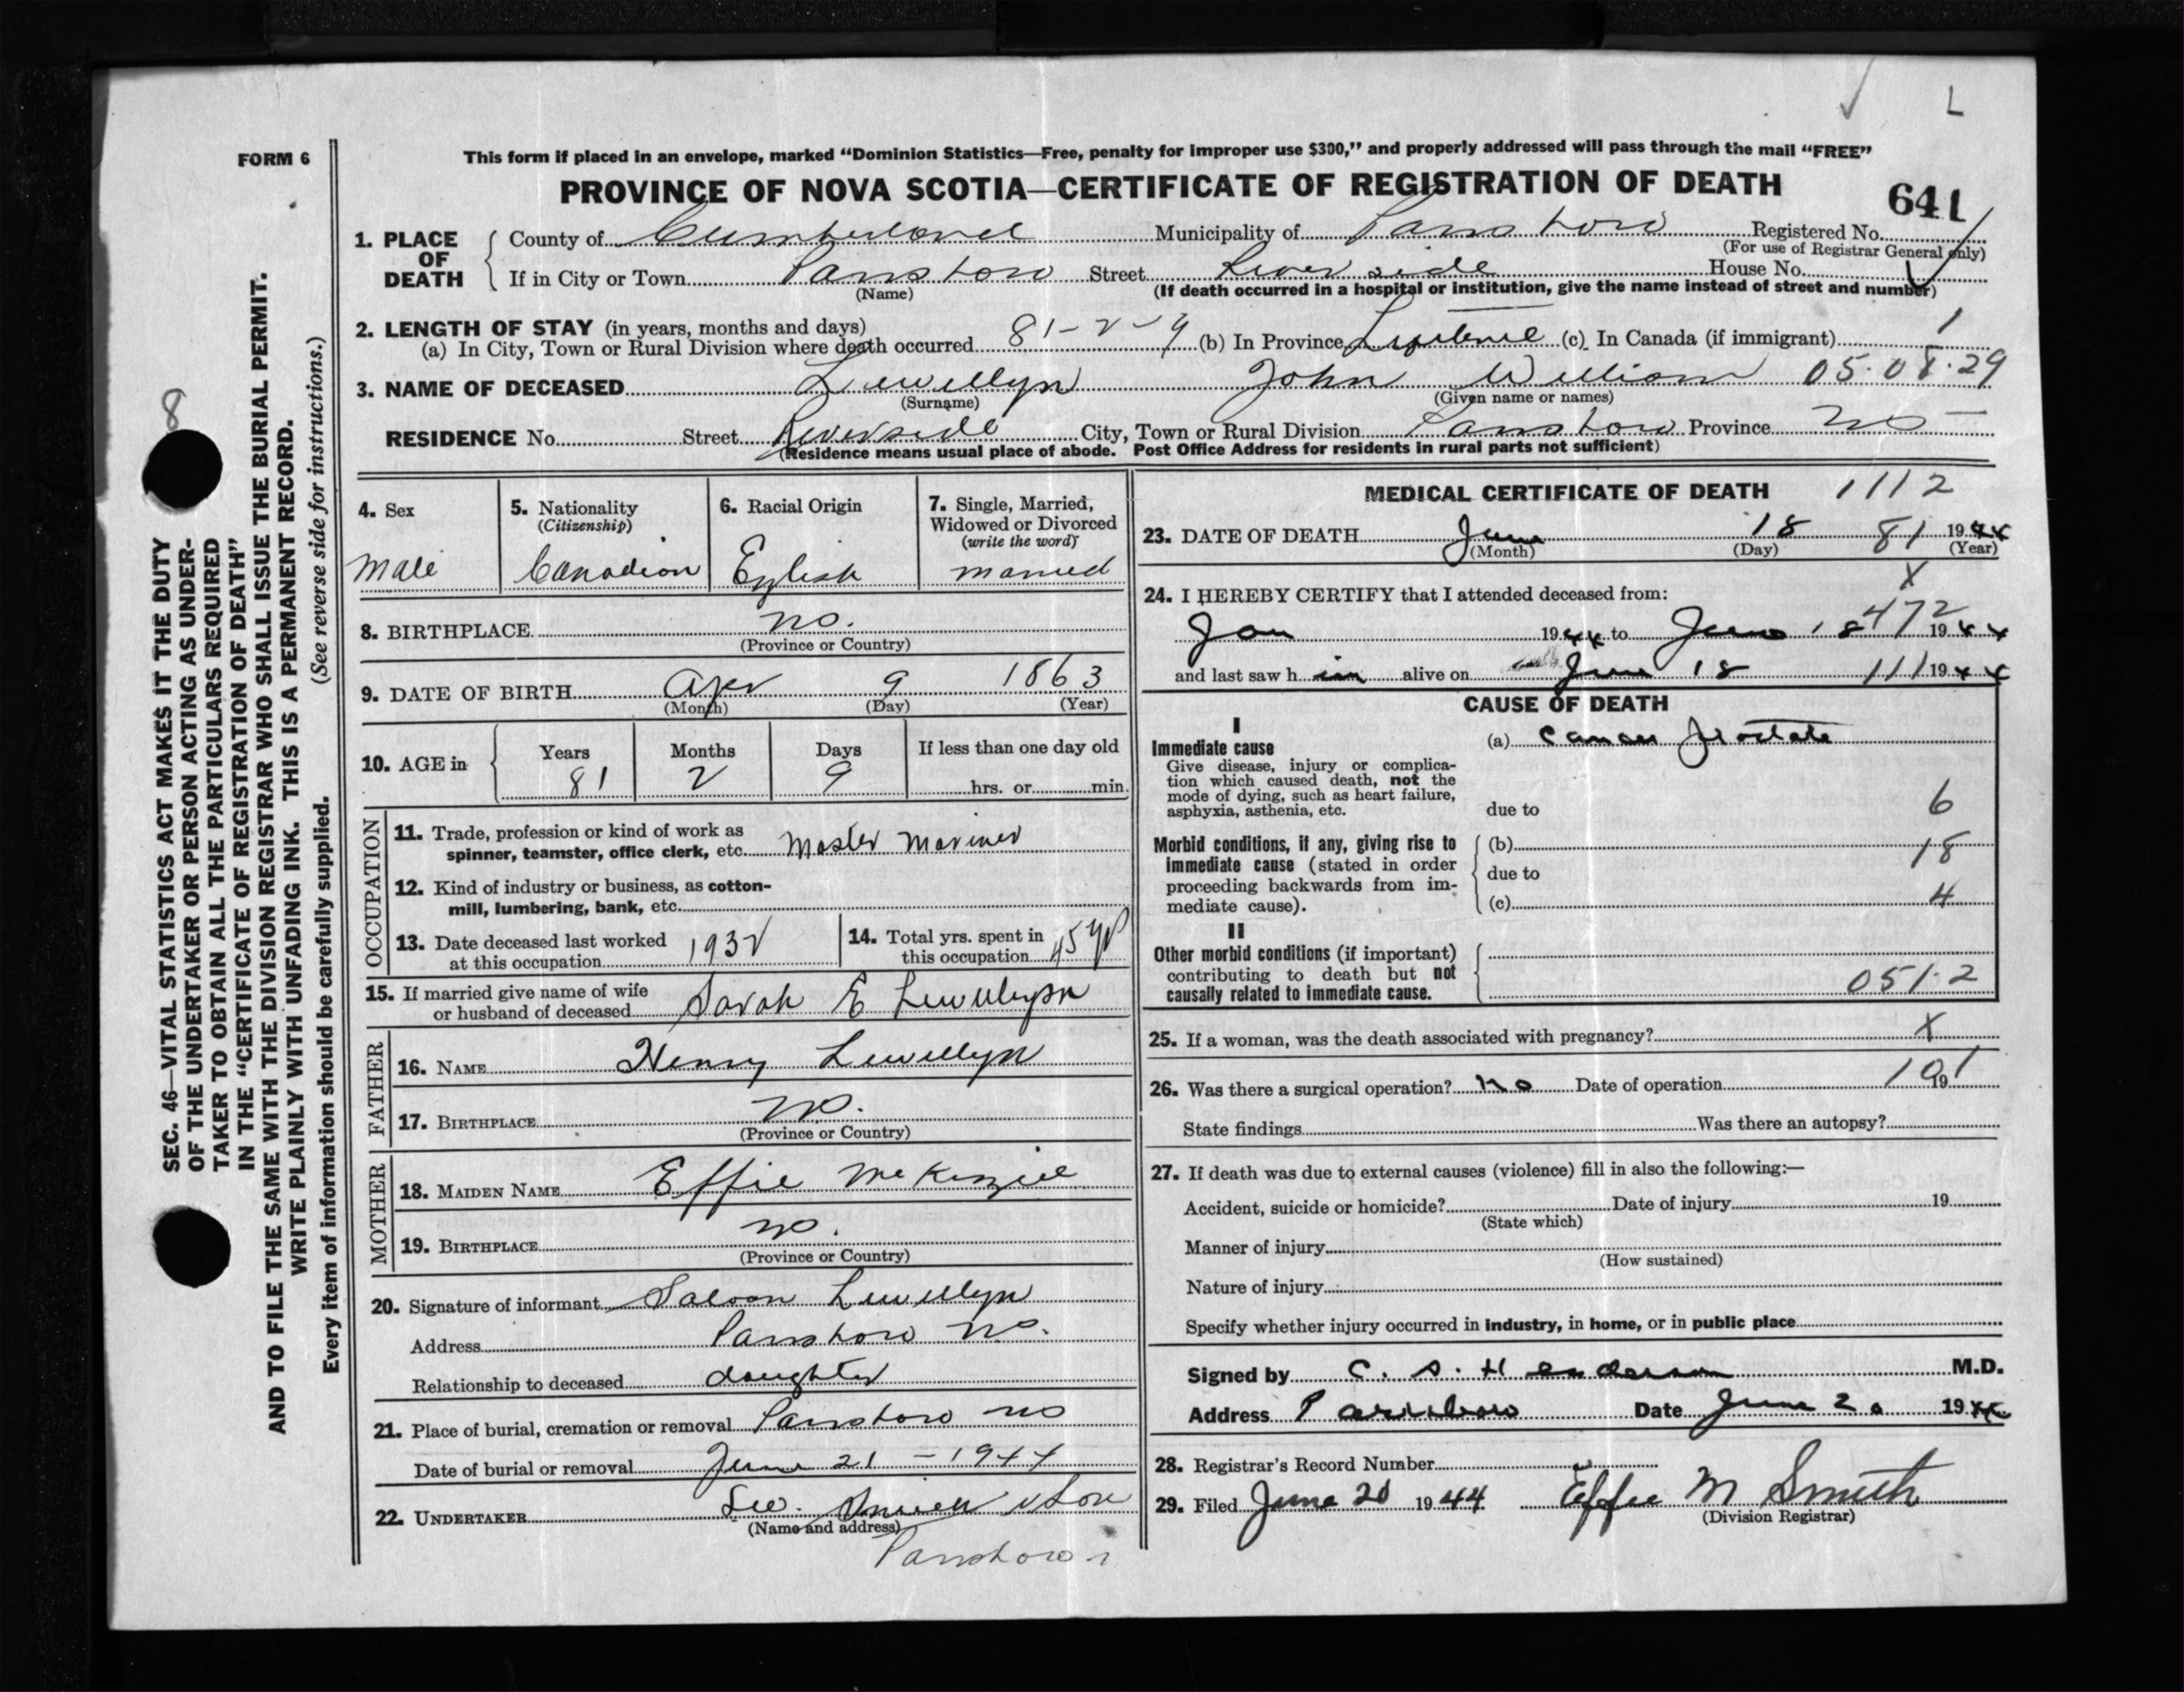 FORM 6
This form if placed in an envelope, marked “Dominion Statistics—Free, penalty for improper use $300,” and properly addressed will pass through the mail “FREE”
PROVINCE OF NOVA SCOTIA—CERTIFICATE OF REGISTRATION OF DEATH
641
1. PLACE OF DEATH
County of Cumberland Municipality of Parrsboro Registered No.
(For use of Registrar General only)
If in City or Town Parrsboro Street Riverside House No.
(Name) (If death occurred in a hospital or institution, give the name instead of street and number)
2. LENGTH OF STAY (in years, months and days)
(a) In City, Town or Rural Division where death occurred 81-2-9 (b) In Province Lifetime (c) In Canada (if immigrant) 1
3. NAME OF DECEASED Lewellyn John William 05.08.29
(Surname) (Given name or names)
RESIDENCE No. Street Riverside City, Town or Rural Division Parrsboro Province NS
(Residence means usual place of abode. Post Office Address for residents in rural parts not sufficient)
4. Sex Male
5. Nationality (Citizenship) Canadian
6. Racial Origin English
7. Single, Married, Widowed or Divorced (write the word) married
8. BIRTHPLACE NS.
(Province or Country)
9. DATE OF BIRTH Apr 9 1863
(Month) (Day) (Year)
10. AGE in Years 81 Months 2 Days 9 If less than one day old
hrs. or min.
OCCUPATION
11. Trade, profession or kind of work as
spinner, teamster, office clerk, etc. Master Mariner
12. Kind of industry or business, as cotton-
mill, lumbering, bank, etc.
13. Date deceased last worked at this occupation 1932
14. Total yrs. spent in this occupation 45 yr
15. If married give name of wife
or husband of deceased Sarah E Lewellyn
FATHER
16. NAME Henry Lewellyn
17. BIRTHPLACE NS.
(Province or Country)
MOTHER
18. MAIDEN NAME Effie McKenzie
19. BIRTHPLACE NS.
(Province or Country)
20. Signature of informant Lewellyn
Address Parrsboro NS.
Relationship to deceased daughter
21. Place of burial, cremation or removal Parrsboro NS
Date of burial or removal June 21 - 1944
22. UNDERTAKER Son
(Name and address)
Parrsboro
MEDICAL CERTIFICATE OF DEATH 1112
23. DATE OF DEATH June 18 81 1944
(Month) (Day) (Year)
X
24. I HEREBY CERTIFY that I attended deceased from:
472
Jan 1944 to June 18 1944
and last saw h im alive on June 18 111 1944
CAUSE OF DEATH
I
Immediate cause (a) Cancer Prostate
Give disease, injury or complica-
tion which caused death, not the
mode of dying, such as heart failure,
asphyxia, asthenia, etc. due to 6
Morbid conditions, if any, giving rise to (b) 18
immediate cause (stated in order due to
proceeding backwards from im-
mediate cause). (c) 4
II
Other morbid conditions (if important)
contributing to death but not
causally related to immediate cause. 051.2
25. If a woman, was the death associated with pregnancy? X
26. Was there a surgical operation? no Date of operation 19
101
State findings Was there an autopsy?
27. If death was due to external causes (violence) fill in also the following:—
Accident, suicide or homicide? Date of injury 19
(State which)
Manner of injury
(How sustained)
Nature of injury
Specify whether injury occurred in industry, in home, or in public place
Signed by C. S. Henderson M.D.
Address Parrsboro Date June 20 1944
28. Registrar's Record Number
29. Filed June 20 1944 Effie M Smith
(Division Registrar)
SEC. 46—VITAL STATISTICS ACT MAKES IT THE DUTY
OF THE UNDERTAKER OR PERSON ACTING AS UNDER-
TAKER TO OBTAIN ALL THE PARTICULARS REQUIRED
IN THE “CERTIFICATE OF REGISTRATION OF DEATH”
AND TO FILE THE SAME WITH THE DIVISION REGISTRAR WHO SHALL ISSUE THE BURIAL PERMIT.
WRITE PLAINLY WITH UNFADING INK. THIS IS A PERMANENT RECORD.
(See reverse side for instructions.)
Every item of information should be carefully supplied.
8
L